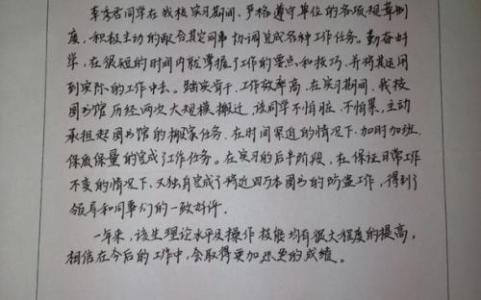 同学在我校实习期间,严格遵守单位的各项规章制
度,积极主动的配合其它同事协调完成各种工作任务。勤奋好
学,在很短的时间内就掌握了工作的要点和技巧,并将其运用
到实际的工作中去。踏实肯干,工作效率高。在实习期间,我校
图书馆历经两次大规模搬迁,该同学不怕脏、不怕累,主动
承担起图书馆的搬家任务。在时间紧迫的情况下,加时加班,
保质保量的完成了工作任务。在实习的后半阶段,在保证日常工作
不变的情况下,又独自完成了将近四万本图书的防盗工作,得到了
领导和同事们的一致好评。
一年来,该生理论水平及操作技能均有很大程度的提高,
相信在今后的工作中,会取得更加的成绩。